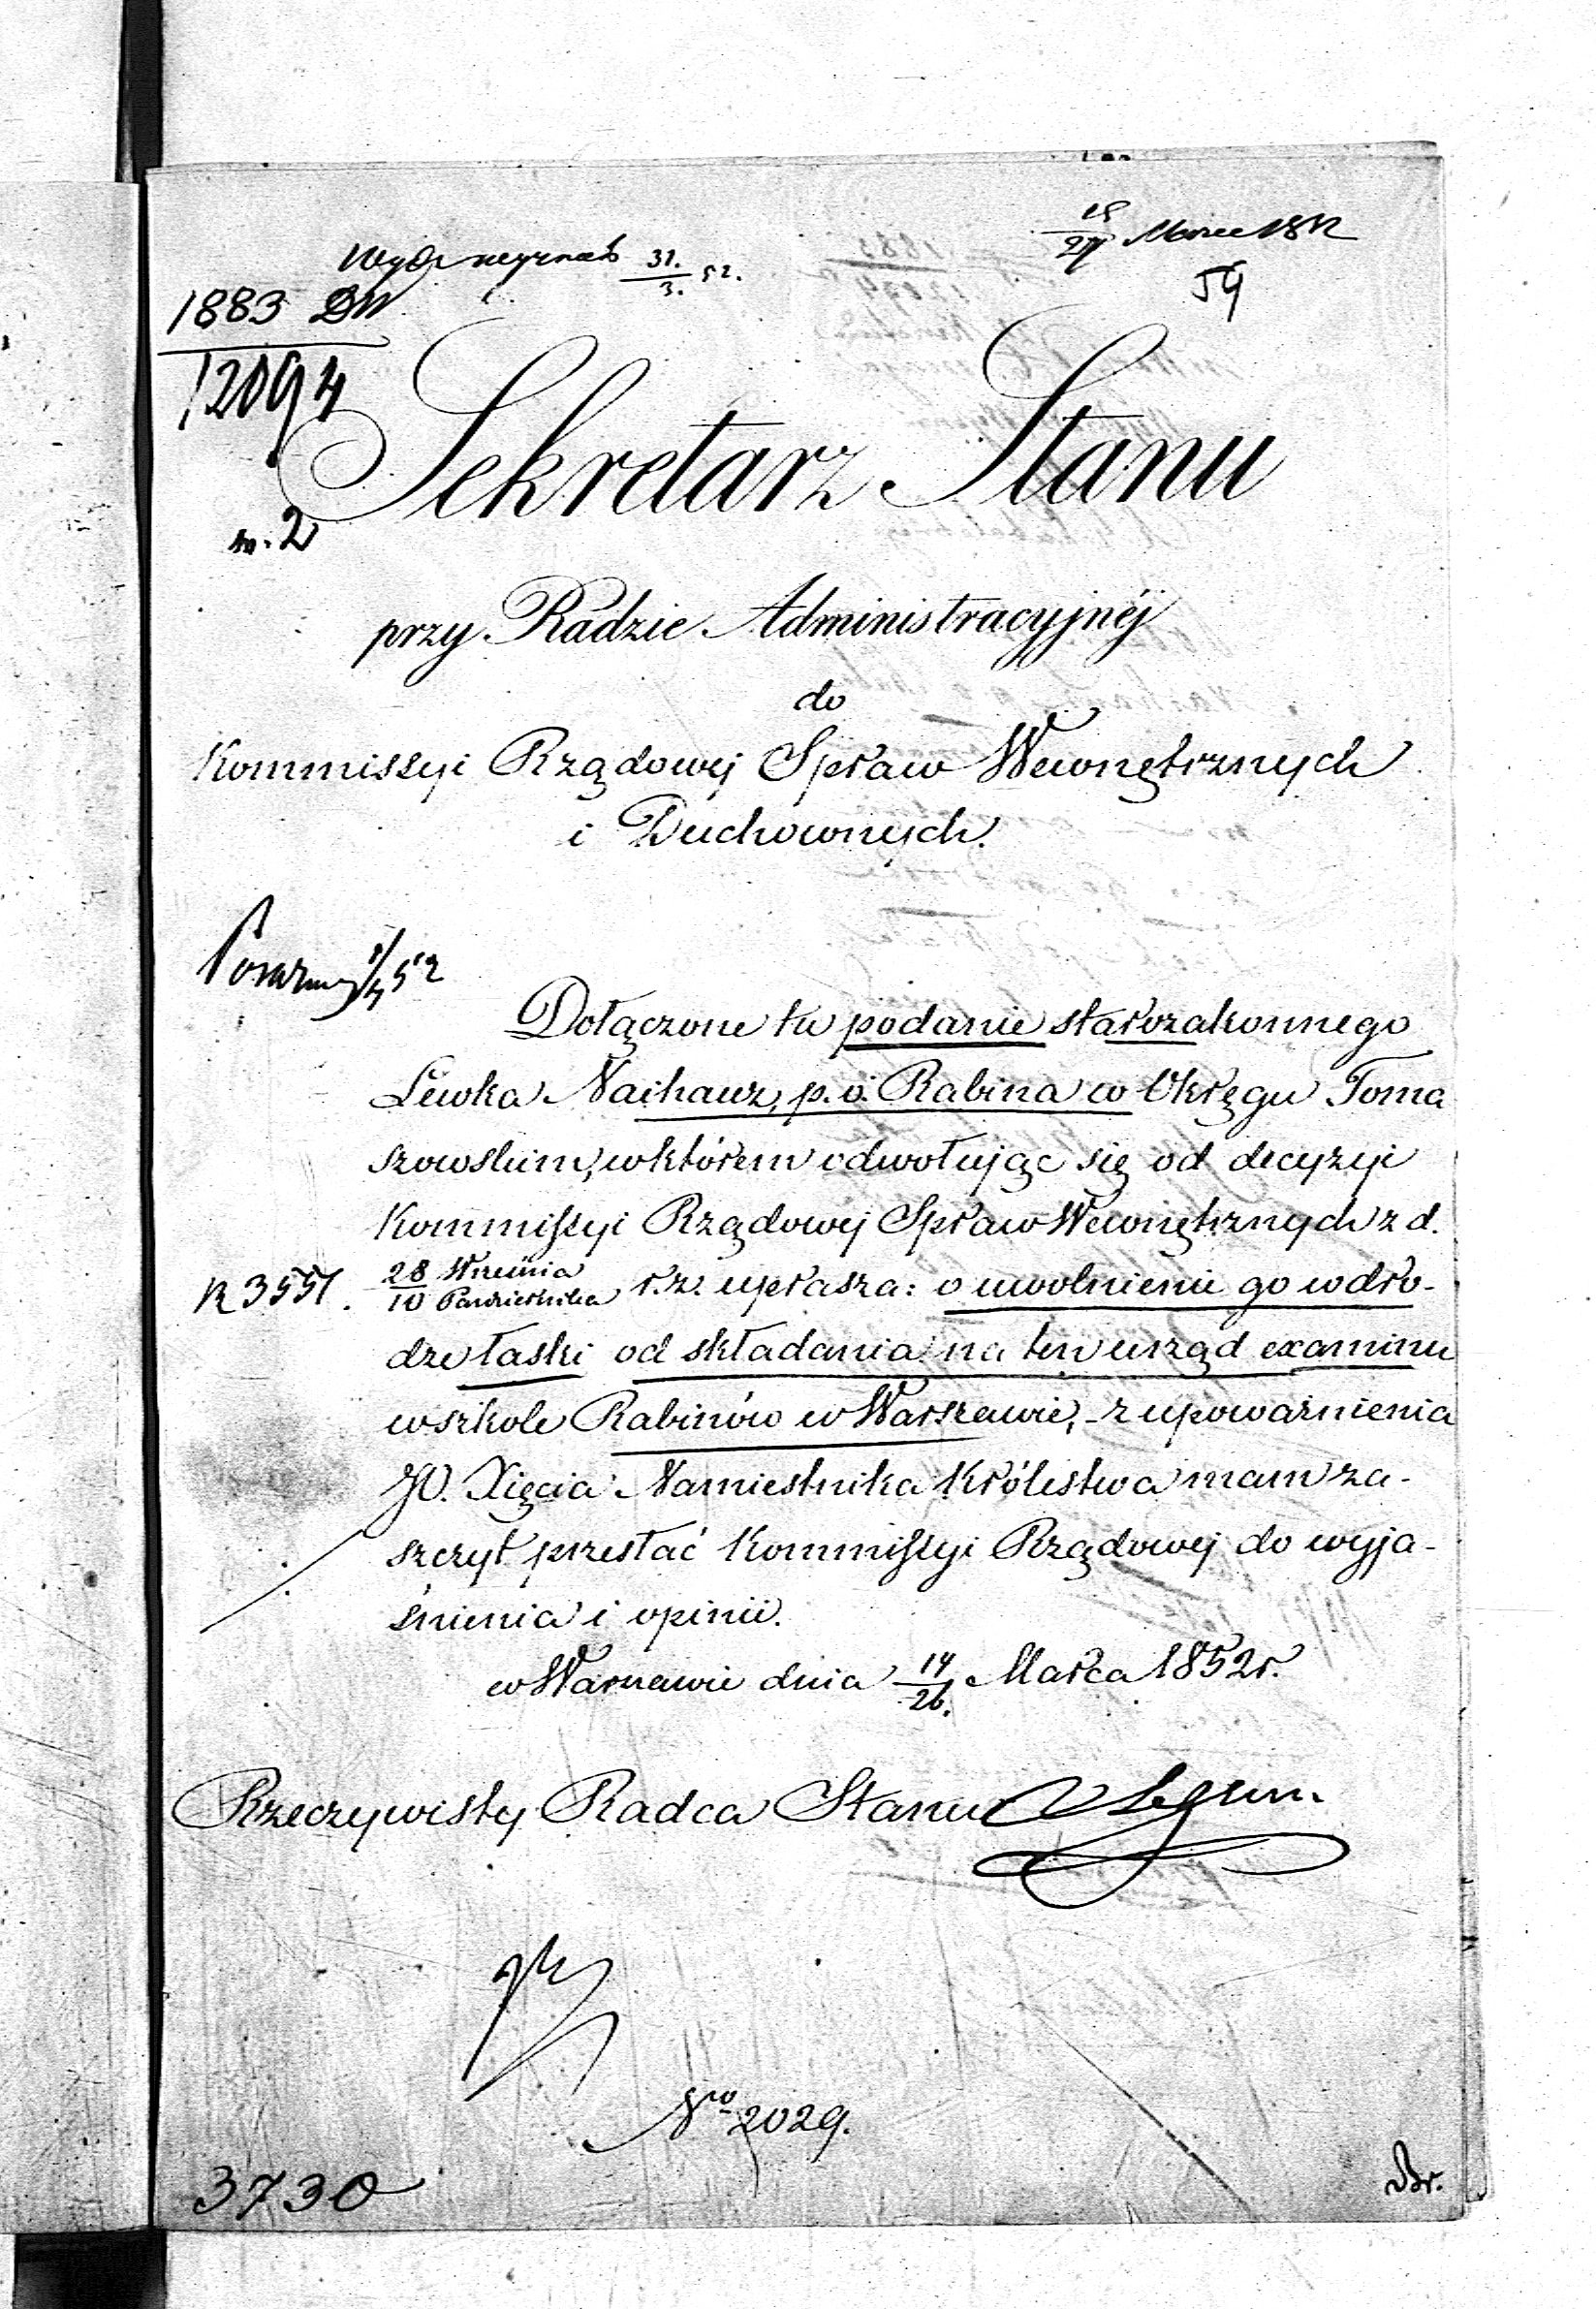 15/27 Marca 1852
31./3. 52.
59
1883 DW
12094
w. 2
Sekretarz Stanu
przy Radzie Administracyjnéj
do
Kommissyi Rządowej Spraw Wewnętrznych
i Duchownych.
1/4 52
Dołączone tu podanie starozakonnego
Lewka Naihauz, p. o. Rabina w Okręgu Toma
szowskim, w którem odwołując się od decyzyi
Kommissyi Rządowej Spraw Wewnętrznych z d.
N 3551. 28 Września/10 Października r. z. uprasza: o uwolnienie go w dro-
dze łaski od składania na ten urząd examinu
w szkole Rabinów w Warszawie, - z upoważnienia
JO. Xięcia Namiestnika Królestwa mam za-
szczyt przesłać Kommissyi Rządowej do wyja-
śnienia i opinii.
w Warszawie dnia 14/26. Marca 1852 r.
Rzeczywisty Radca Stanu
No 2029.
3730